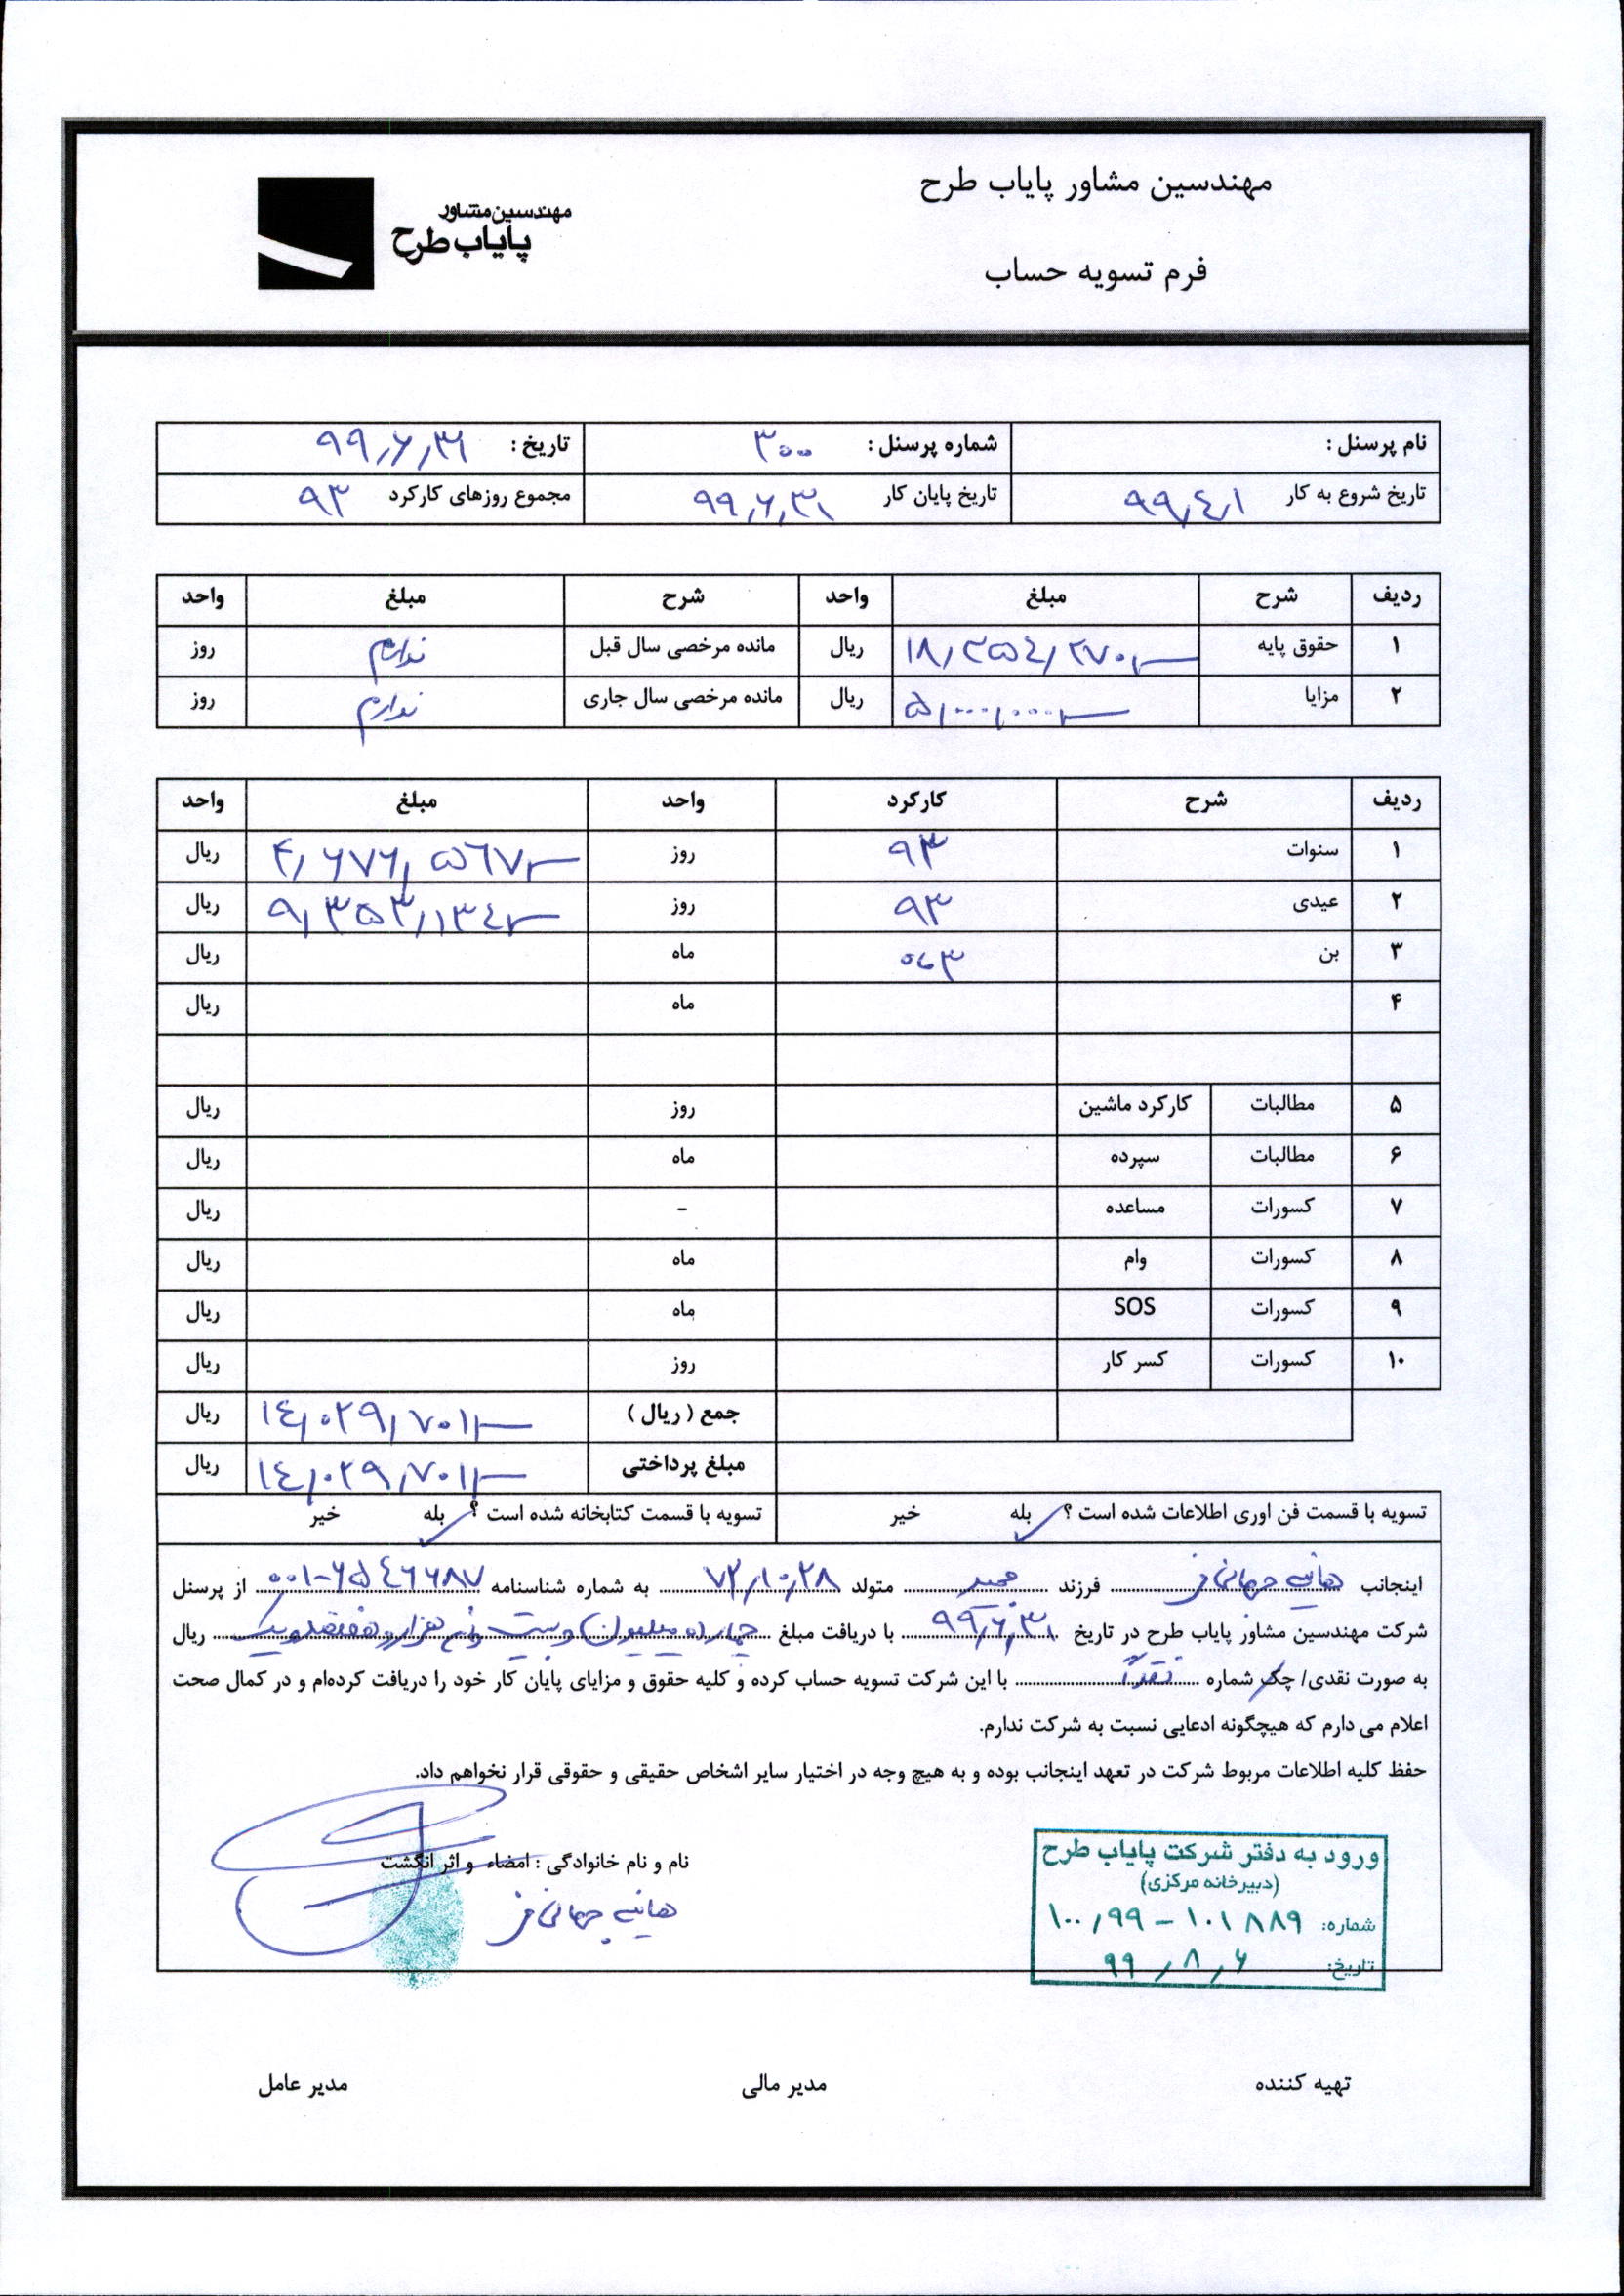 مهندسین مشاور پایاب طرح
مهندسین مشاور
پایاب طرح
فرم تسویه حساب
نام پرسنل : شماره پرسنل : ۳۰۰ تاریخ : ۹۹,۶,۳۱
تاریخ شروع به کار ۹۹,۴,۱ تاریخ پایان کار ۹۹,۶,۳۱ مجموع روزهای کارکرد ۹۳
ردیف شرح مبلغ واحد شرح مبلغ واحد
۱ حقوق پایه ریال مانده مرخصی سال قبل ندارم روز
۲ مزایا ۵,۰۰۰,۰۰۰ ریال مانده مرخصی سال جاری ندارم روز
ردیف شرح کارکرد واحد مبلغ واحد
۱ سنوات ۹۳ روز ۴,۶۷۶,۵۶۷ ریال
۲ عیدی ۹۳ روز ۹,۳۵۳,۱۳۴ ریال
۳ بن ماه ریال
۴ ماه ریال
۵ مطالبات کارکرد ماشین روز ریال
۶ مطالبات سپرده ماه ریال
۷ کسورات مساعده - ریال
۸ کسورات وام ماه ریال
۹ کسورات SOS ماه ریال
۱۰ کسورات کسر کار روز ریال
جمع ( ریال ) ۱۴,۰۲۹,۷۰۱ ریال
مبلغ پرداختی ۱۴,۰۲۹,۷۰۱ ریال
تسویه با قسمت فن اوری اطلاعات شده است ؟ بله خیر تسویه با قسمت کتابخانه شده است ؟ بله خیر
اینجانب هانیه جهانی فر فرزند مجید متولد ۷۲,۱۰,۲۸ به شماره شناسنامه ۰۰۱-۶۵۴۶۶۸۷ از پرسنل
شرکت مهندسین مشاور پایاب طرح در تاریخ ۹۹,۶,۳۱ با دریافت مبلغ چهارده میلیون و بیست و نه هزار و هفتصد و یک ریال
به صورت نقدی/ چک شماره نقداً با این شرکت تسویه حساب کرده و کلیه حقوق و مزایای پایان کار خود را دریافت کرده‌ام و در کمال صحت
اعلام می دارم که هیچگونه ادعایی نسبت به شرکت ندارم.
حفظ کلیه اطلاعات مربوط شرکت در تعهد اینجانب بوده و به هیچ وجه در اختیار سایر اشخاص حقیقی و حقوقی قرار نخواهم داد.
نام و نام خانوادگی : امضاء و اثر انگشت
هانیه جهانی فر
ورود به دفتر شرکت پایاب طرح
(دبیرخانه مرکزی)
شماره: ۱۰۰,۹۹ - ۱۰۱۸۸۹
تاریخ: ۹۹,۸,۶
تهیه کننده مدیر مالی مدیر عامل